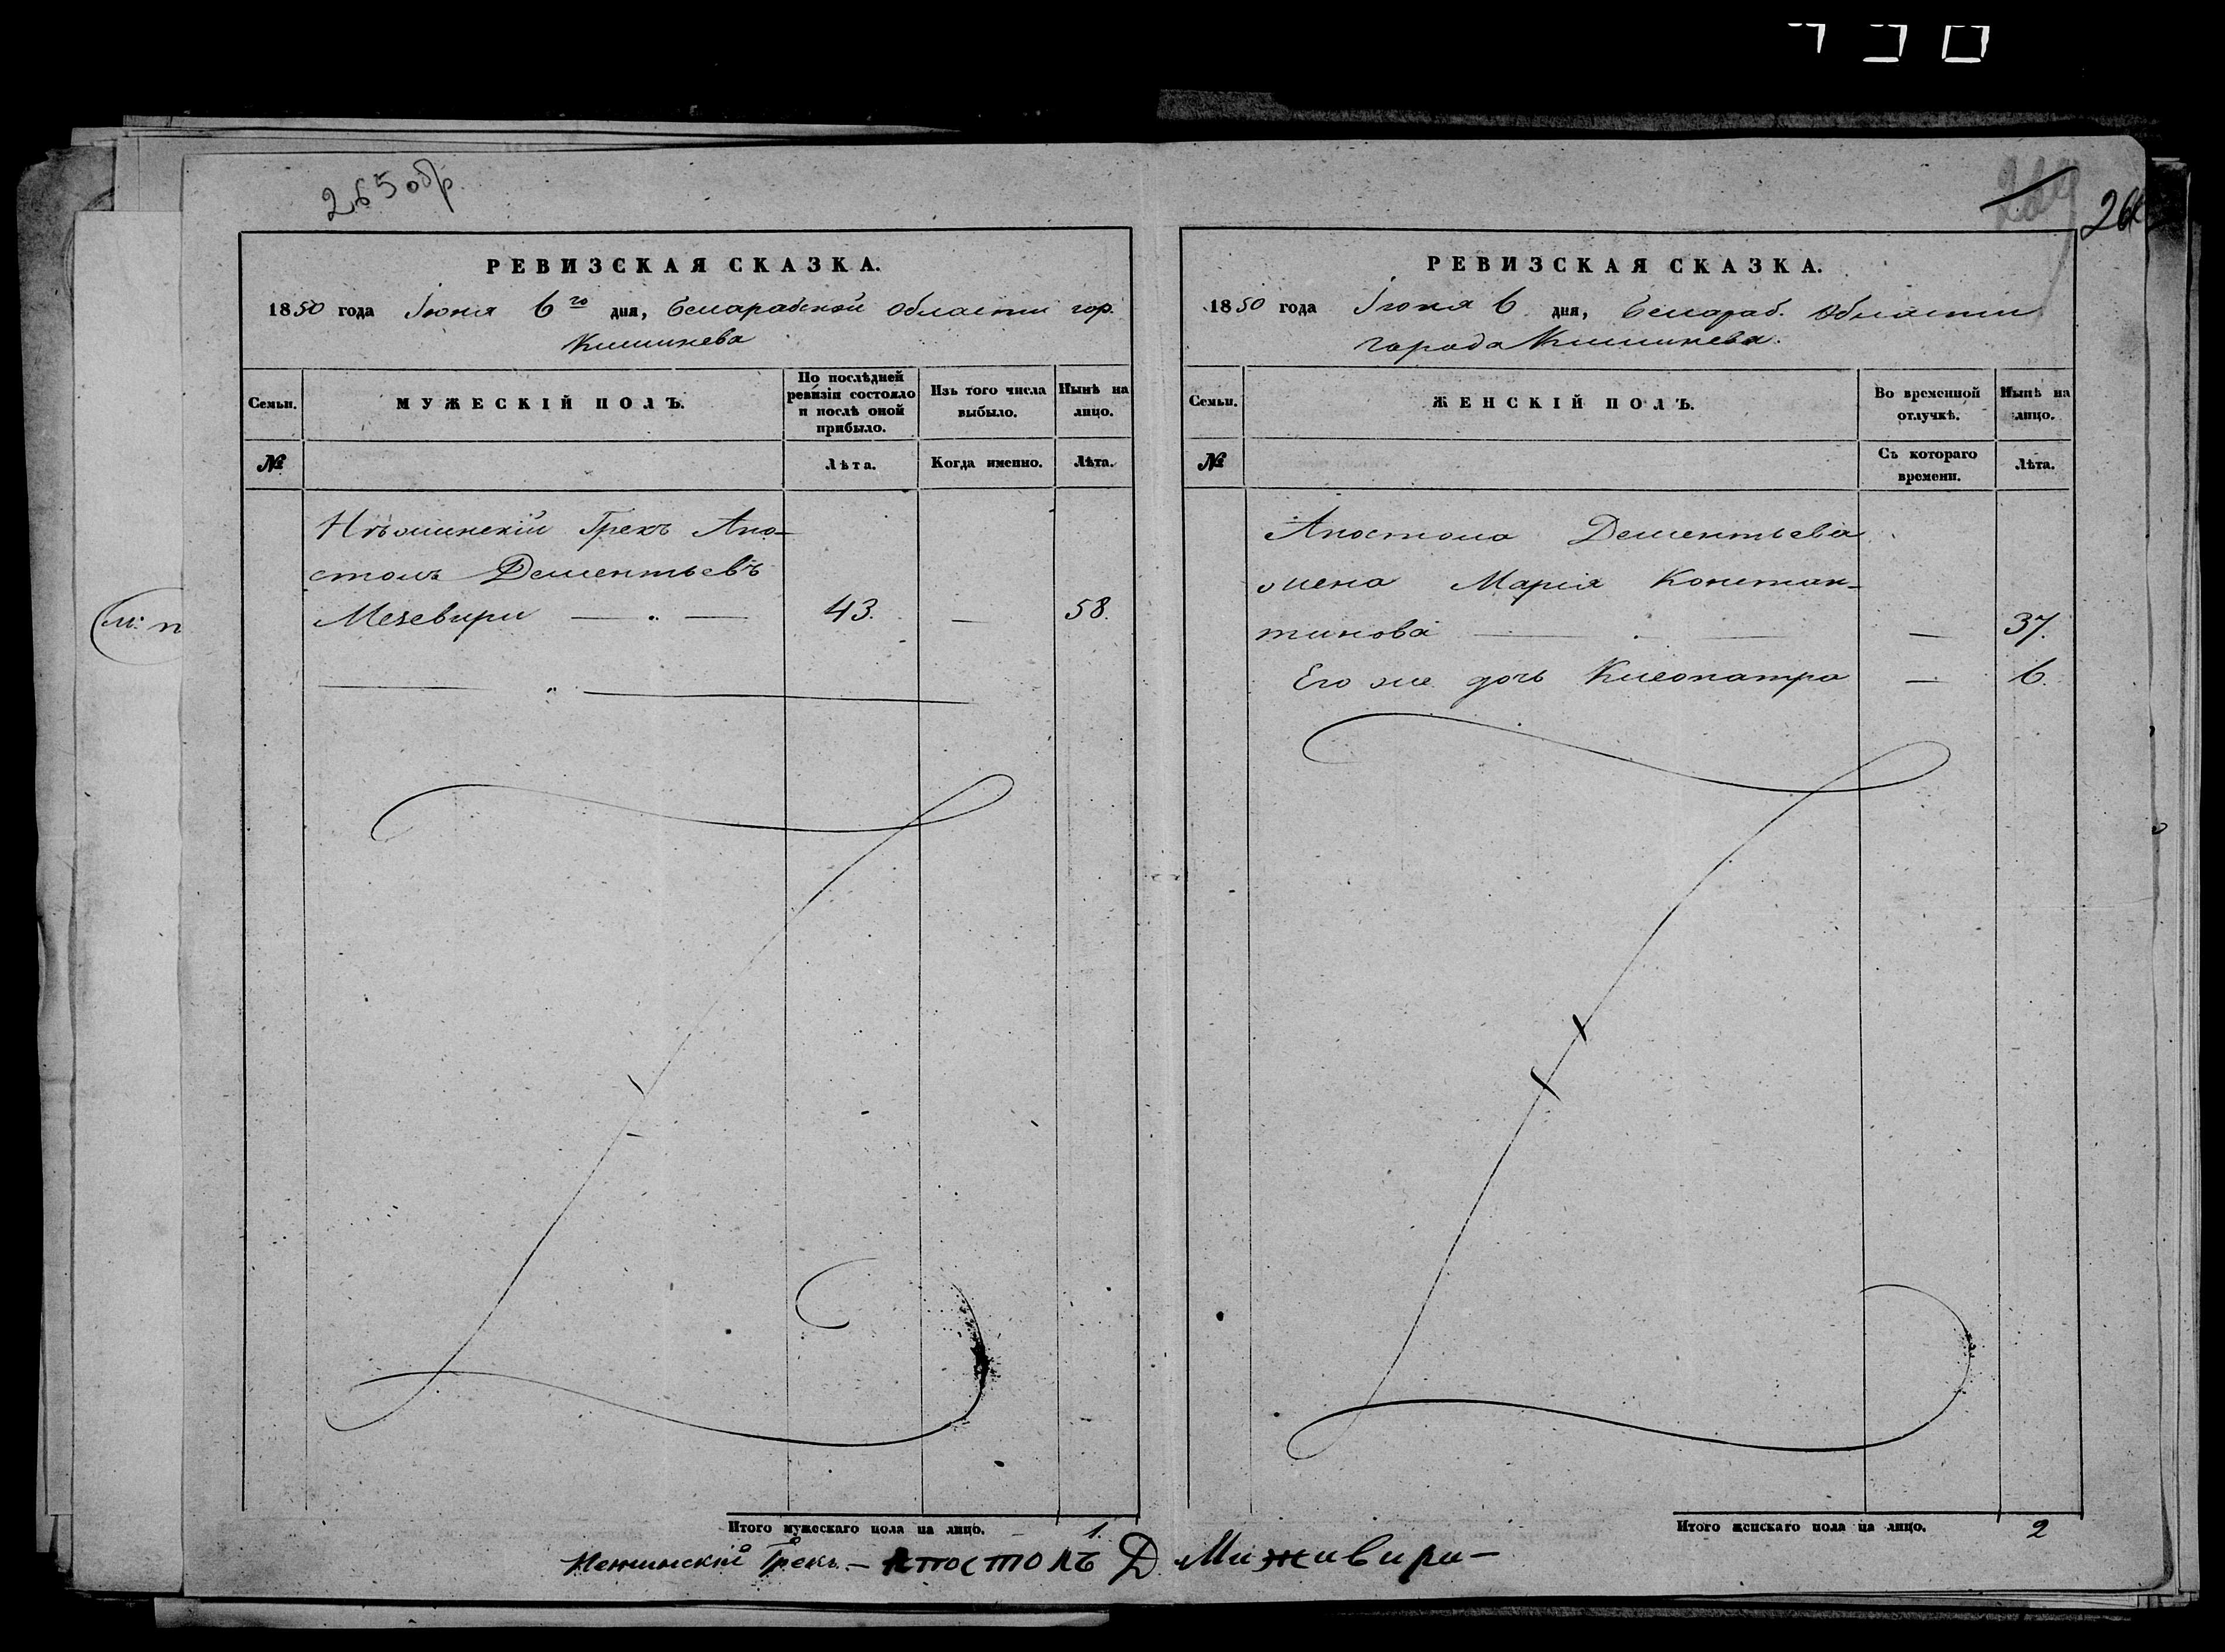 265 обр.
РЕВИЗСКАЯ СКАЗКА.
1850 года Іюня 6го дня, Бессарабской Области гор.
Кишинева
Семьи.
МУЖЕСКІЙ ПОЛЪ.
По послѣдней ревизіи состояло и послѣ оной прибыло.
Изъ того числа выбыло.
Нынѣ на лицо.
№
Лѣта.
Когда именно.
Лѣта.
Нѣжинскій Грекъ Апо-
столъ Дементьевъ
Межевири — 43. — 58.
Итого мужескаго пола на лицо. 1.
269
РЕВИЗСКАЯ СКАЗКА.
1850 года Іюня 6 дня, Бессараб. Области
города Кишинева.
Семьи.
ЖЕНСКІЙ ПОЛЪ.
Во временной отлучкѣ.
Нынѣ на лицо.
№
Съ котораго времени.
Лѣта.
Апостола Дементьева
жена Марія Констан-
тинова — 37.
Его же дочь Клеопатра — 6.
Итого женскаго пола на лицо. 2
Нежинскій Грекъ — Апостолъ Д. Миживири —